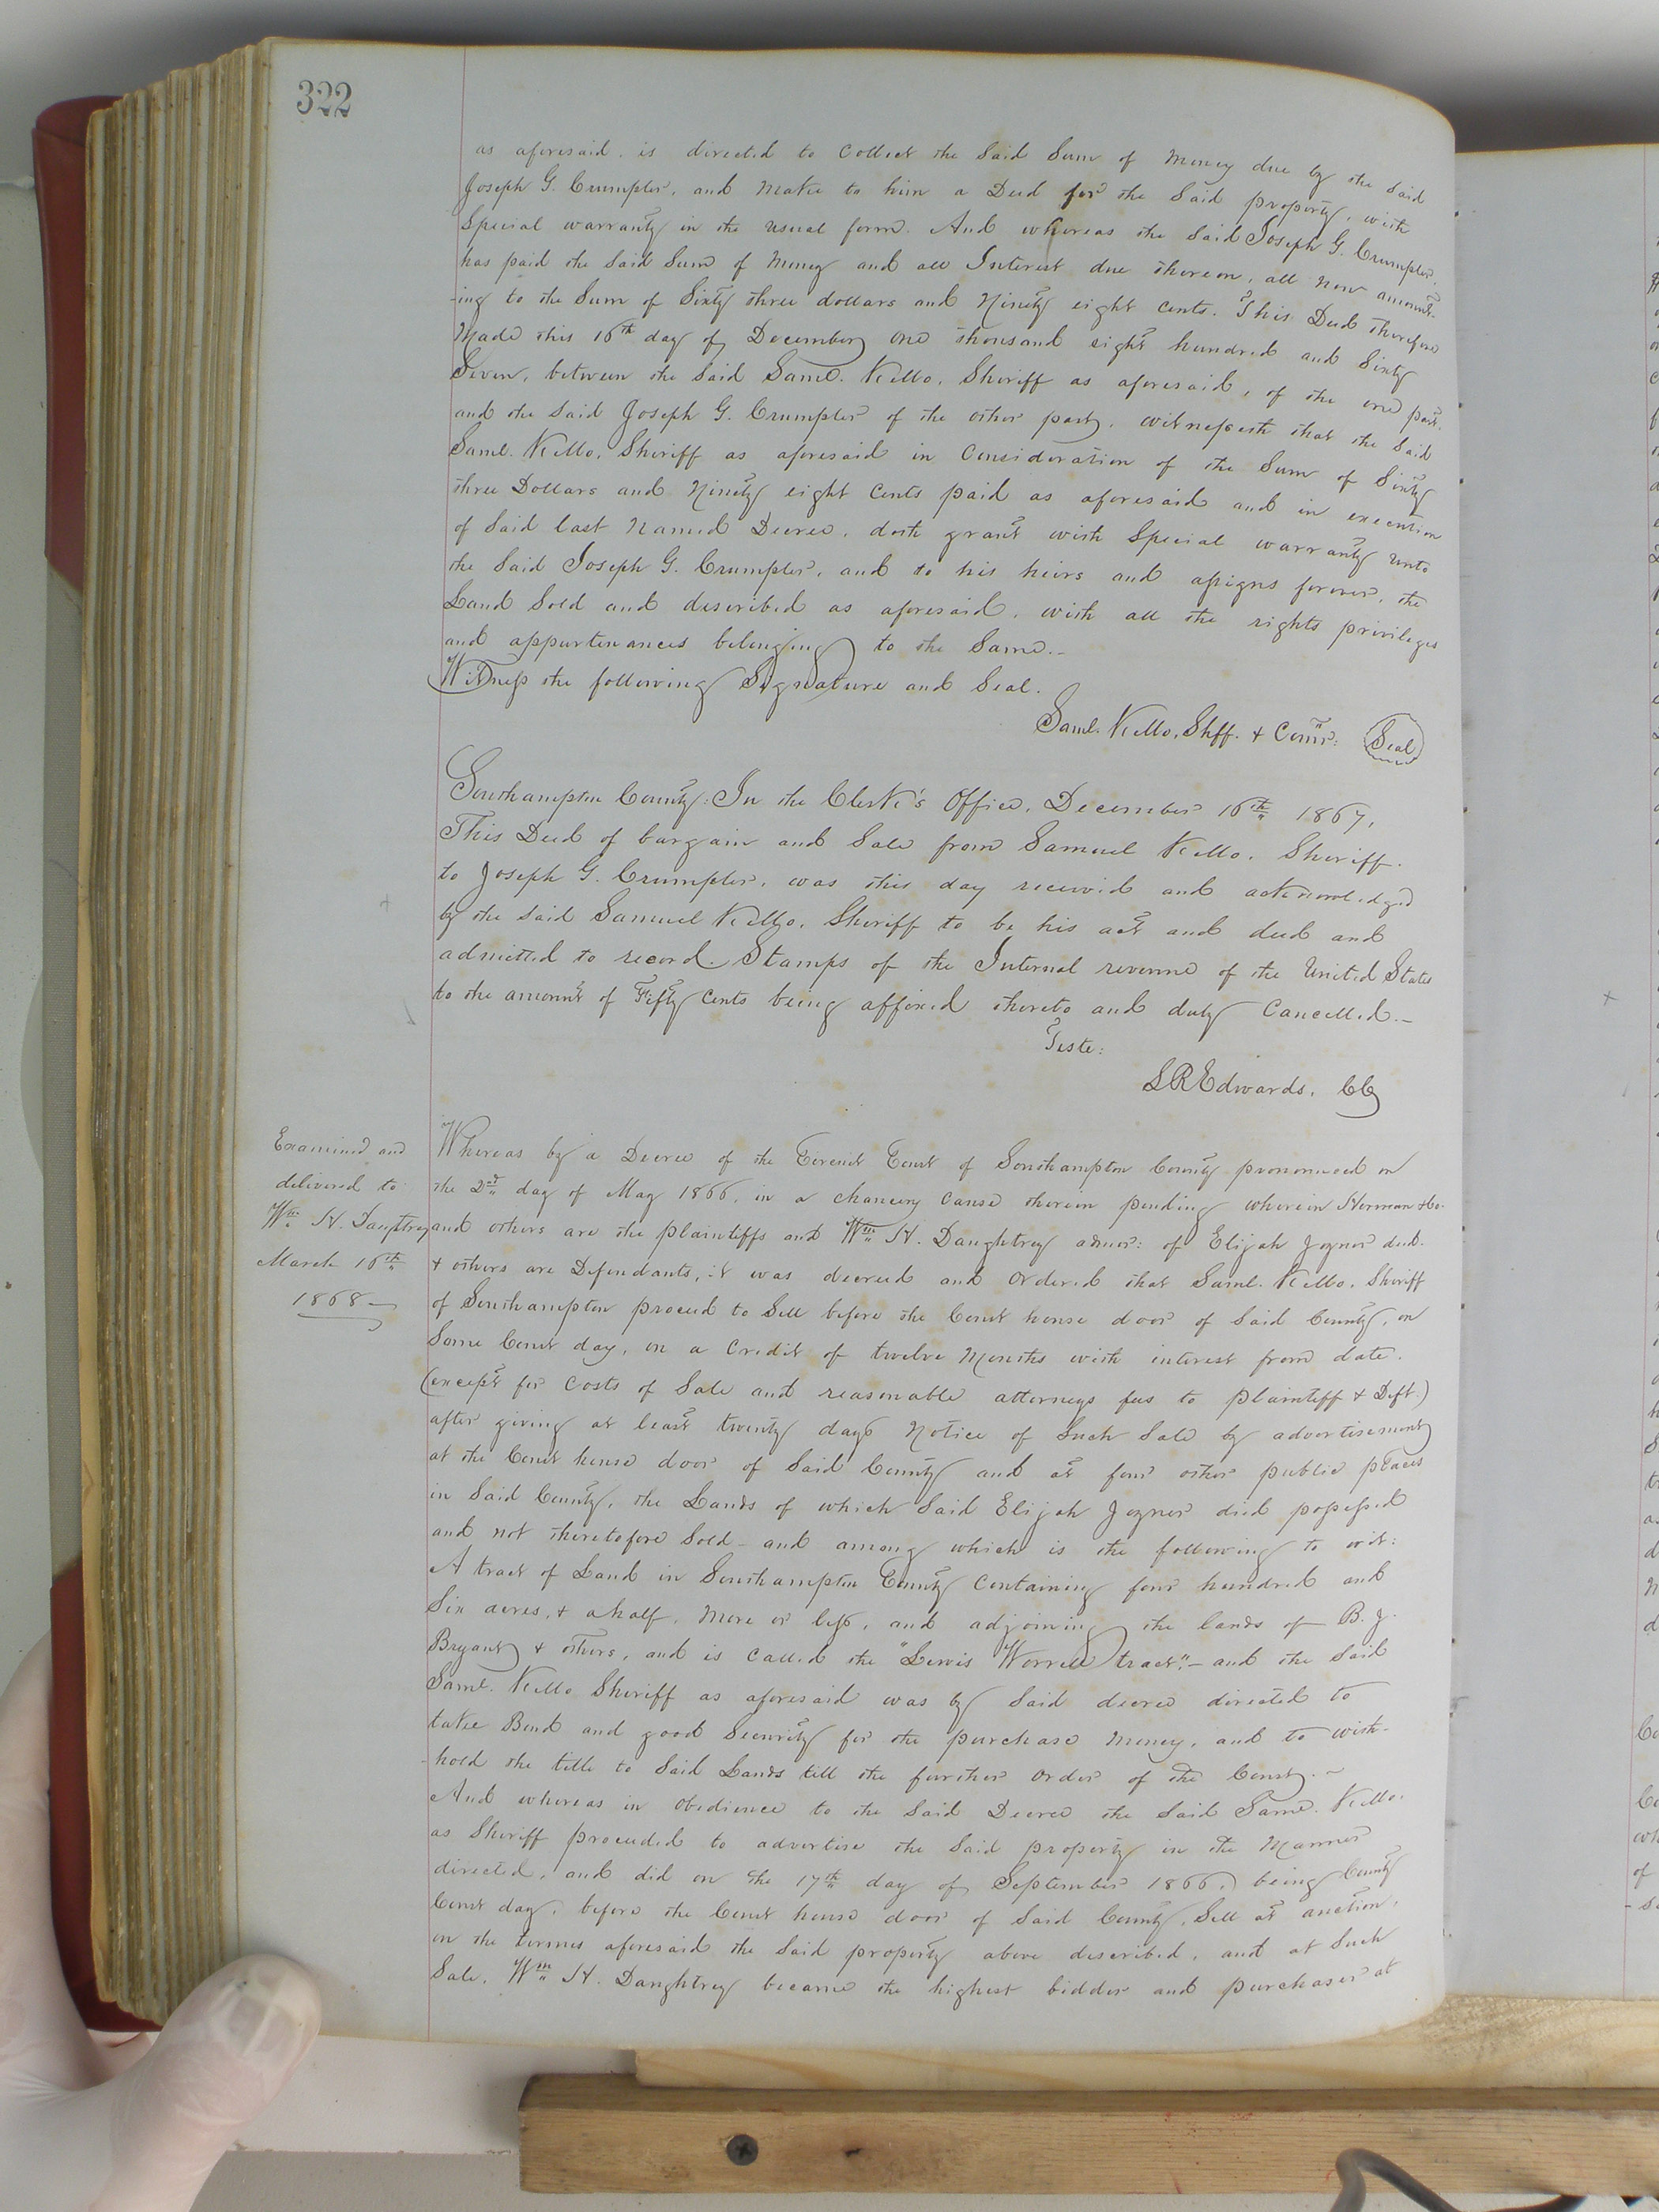 322
as aforesaid. is directed to Collect the Said Sum of Money due by the Said
Joseph G. Crumpler, and Make to him a Deed for the Said property, with
Special warranty in the usual form. And whereas the Said Joseph G. Crumpler,
has paid the Said Sum of Money and all Interest due thereon, all now amount-
-ing to the Sum of Sixty three dollars and Ninety eight cents. This Deed Therefore
Made this 16th day of December one thousand eight hundred and Sixty
Seven, between the Said Saml. Kello, Sheriff as aforesaid, of the one part.
and the Said Joseph G. Crumpler of the other party, witnesseth that the Said
Saml. Kello, Sheriff as aforesaid in Consideration of the Sum of Sixty
three Dollars and Ninety eight Cents paid as aforesaid and in execution
of Said last Named Decree, doth grant with Special warranty unto
the Said Joseph G. Crumpler, and to his heirs and assigns forever, the
Land Sold and described as aforesaid, with all the rights privileges
and appurtenances belonging to the Same.-
Witness the following Signature and Seal.
Saml. Kello, Shff. + Comr: Seal
Southampton County: In the Clerk's Office, December 16th 1867,
This Deed of bargain and Sale from Samuel Kello, Sheriff.
to Joseph G. Crumpler, was this day received and acknowledged
by the Said Samuel Kello, Sheriff to be his act and deed and
admitted to record. Stamps of the Internal revenue of the United States
to the amount of Fifty Cents being affixed thereto and duly Cancelled.-
Teste:
LREdwards, CC
Examined and
delivered to
Wm H. Daughtrey
March 16th
1868-
Whereas by a Decree of the Circuit Court of Southampton County pronounced on
the 2nd day of May 1866, in a chancery Cause therein pending wherein Herman & Co.
and others are the plaintiffs and Wm H. Daughtrey admor: of Elijah Joyner decd.
+ others are Defendants, it was decreed and Ordered that Saml. Kello, Sheriff
of Southampton proceed to Sell before the Court house door of Said County, on
Some Court day, on a Credit of twelve Months with interest from date.
(except for Costs of Sale and reasonable attorneys fees to plaintiff + Deft.)
after giving at least twenty days Notice of Such Sale by advertisement
at the Court house door of Said County and at four other public places
in Said County, the Lands of which Said Elijah Joyner died possessed
and not theretofore Sold- and among which is the following to wit:
A tract of Land in Southampton County Containing four hundred and
Six acres, + a half, More or less, and adjoining the lands of B. J.
Bryant + others, and is Called the "Lewis Worrell tract".- and the Said
Saml. Kello Sheriff as aforesaid was by Said decree directed to
take Bond and good Security for the purchase Money, and to with-
-hold the title to Said Lands till the further Order of the Court.-
And whereas in Obedience to the Said Decree the Said Saml. Kello,
as Sheriff proceeded to advertise the Said property in the Manner
directed, and did on the 17th day of September 1866, being County
Court day, before the Court house door of Said County, Sell at auction,
on the terms aforesaid the Said property above described, and at Such
Sale, Wm H. Daughtrey became the highest bidder and purchaser at